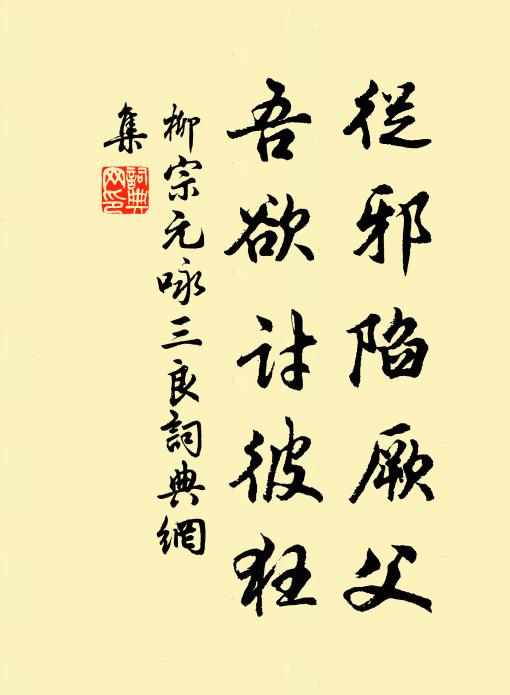 從邪陷厥父
吾欲討彼狂
柳宗元咏三良詞典網
集
詞典網印